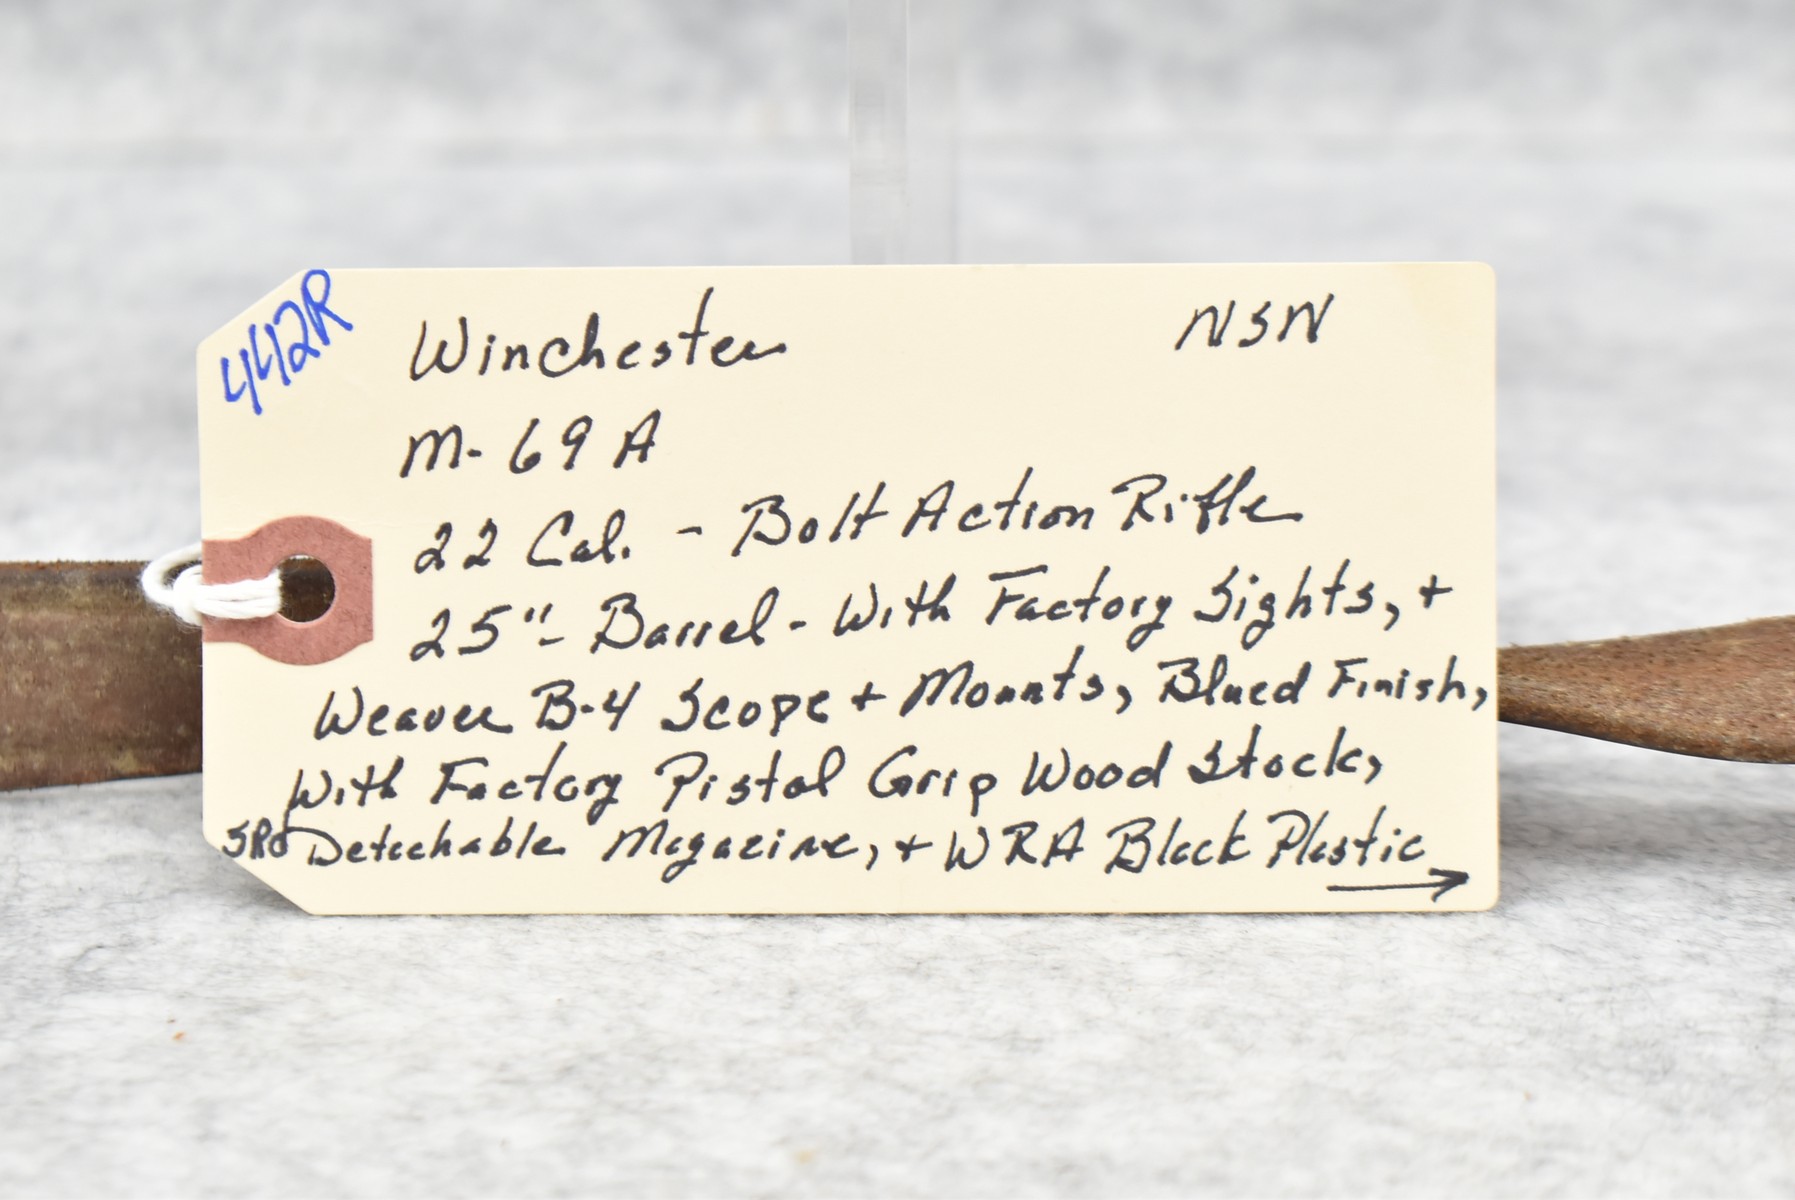 442R
Winchester NSN
M-69A
22 Cal. - Bolt Action Rifle
25"- Barrel - With Factory Sights, +
Weaver B-4 Scope + Mounts, Blued Finish,
With Factory Pistol Grip Wood Stock,
5Rd Detachable Magazine, + WRA Black Plastic
→